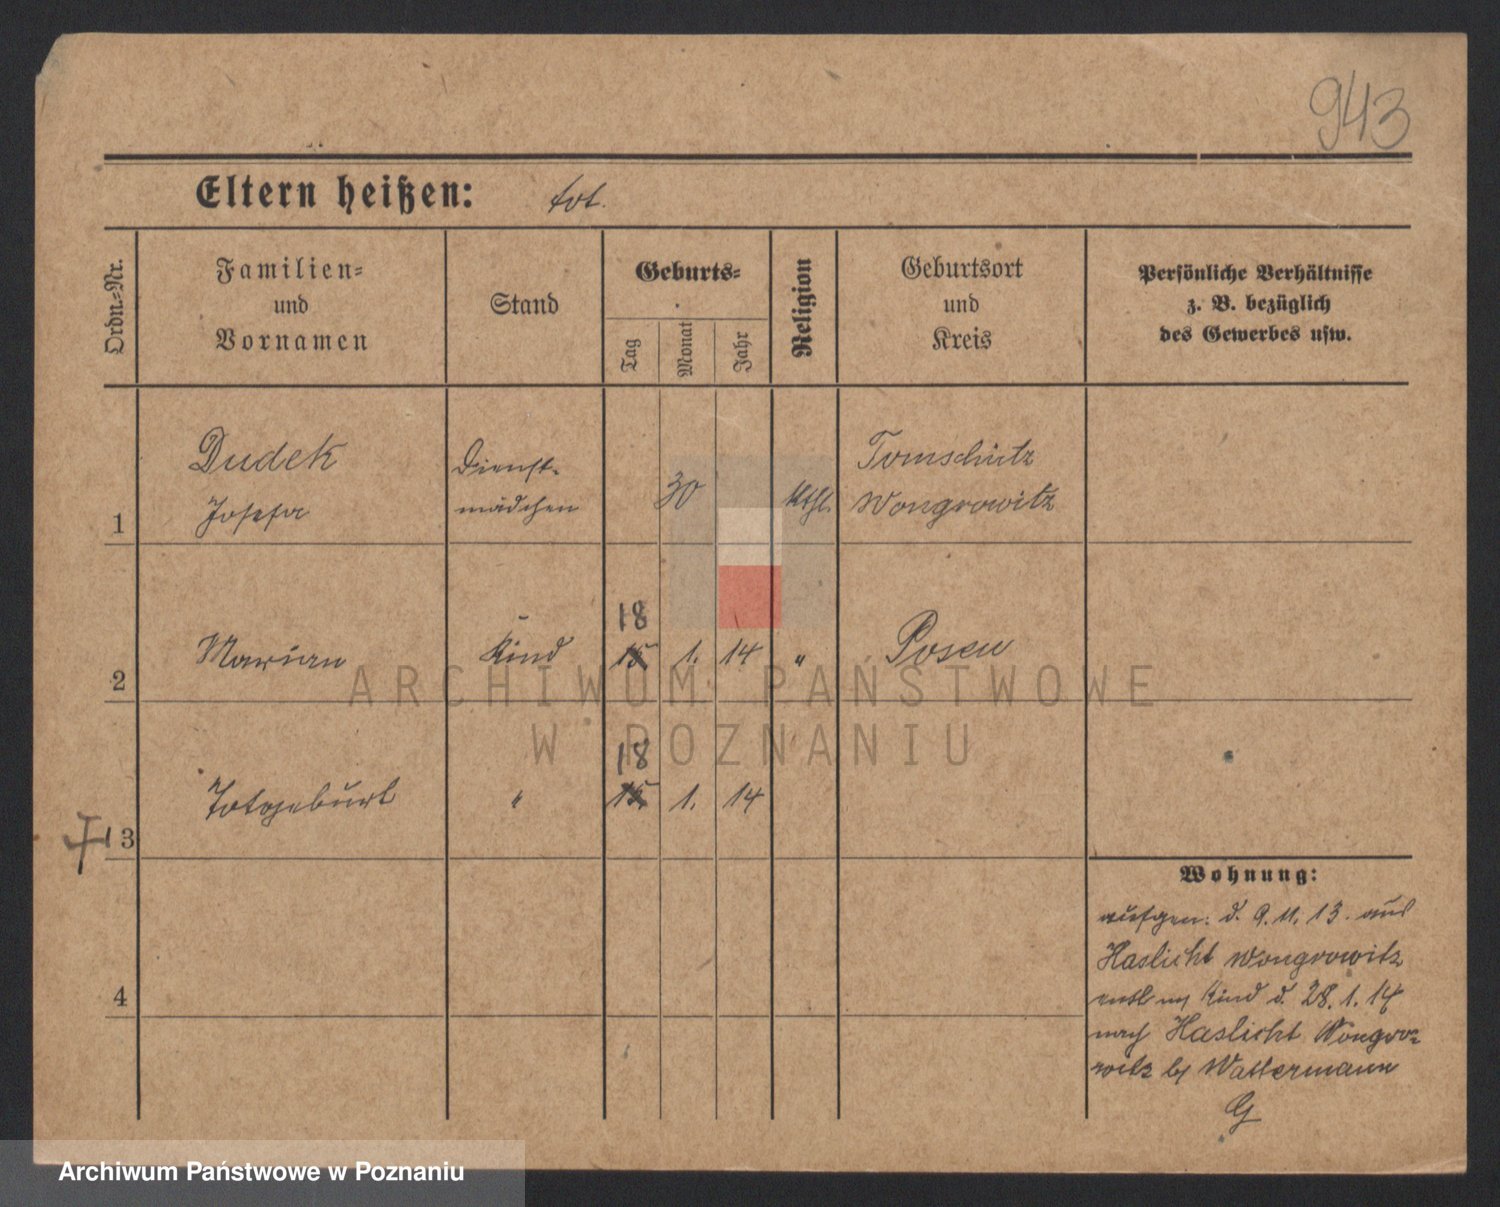 943
Eltern heißen: tot.
Ordn.=Nr.
Familien=
und
Vornamen
Stand
Geburts=
Tag
Monat
Jahr
Religion
Geburtsort
und
Kreis
Persönliche Verhältnisse
z. B. bezüglich
des Gewerbes usw.
1
Dudek
Josefa
Dienst-
mädchen
30
kthl.
Tomschütz
Wongrowitz
2
Marian
Kind
18
15
1.
14
"
Posen
3
Totgeburt
"
18
15
1.
14
4
Wohnung:
aufgen: d. 9.11.13. aus
Haslicht Wongrowitz
entl Kind d. 28.1.14
nach Haslicht Wongro=
witz b/ Wattermann
G
ARCHIWUM PAŃSTWOWE
W POZNANIU
Archiwum Państwowe w Poznaniu